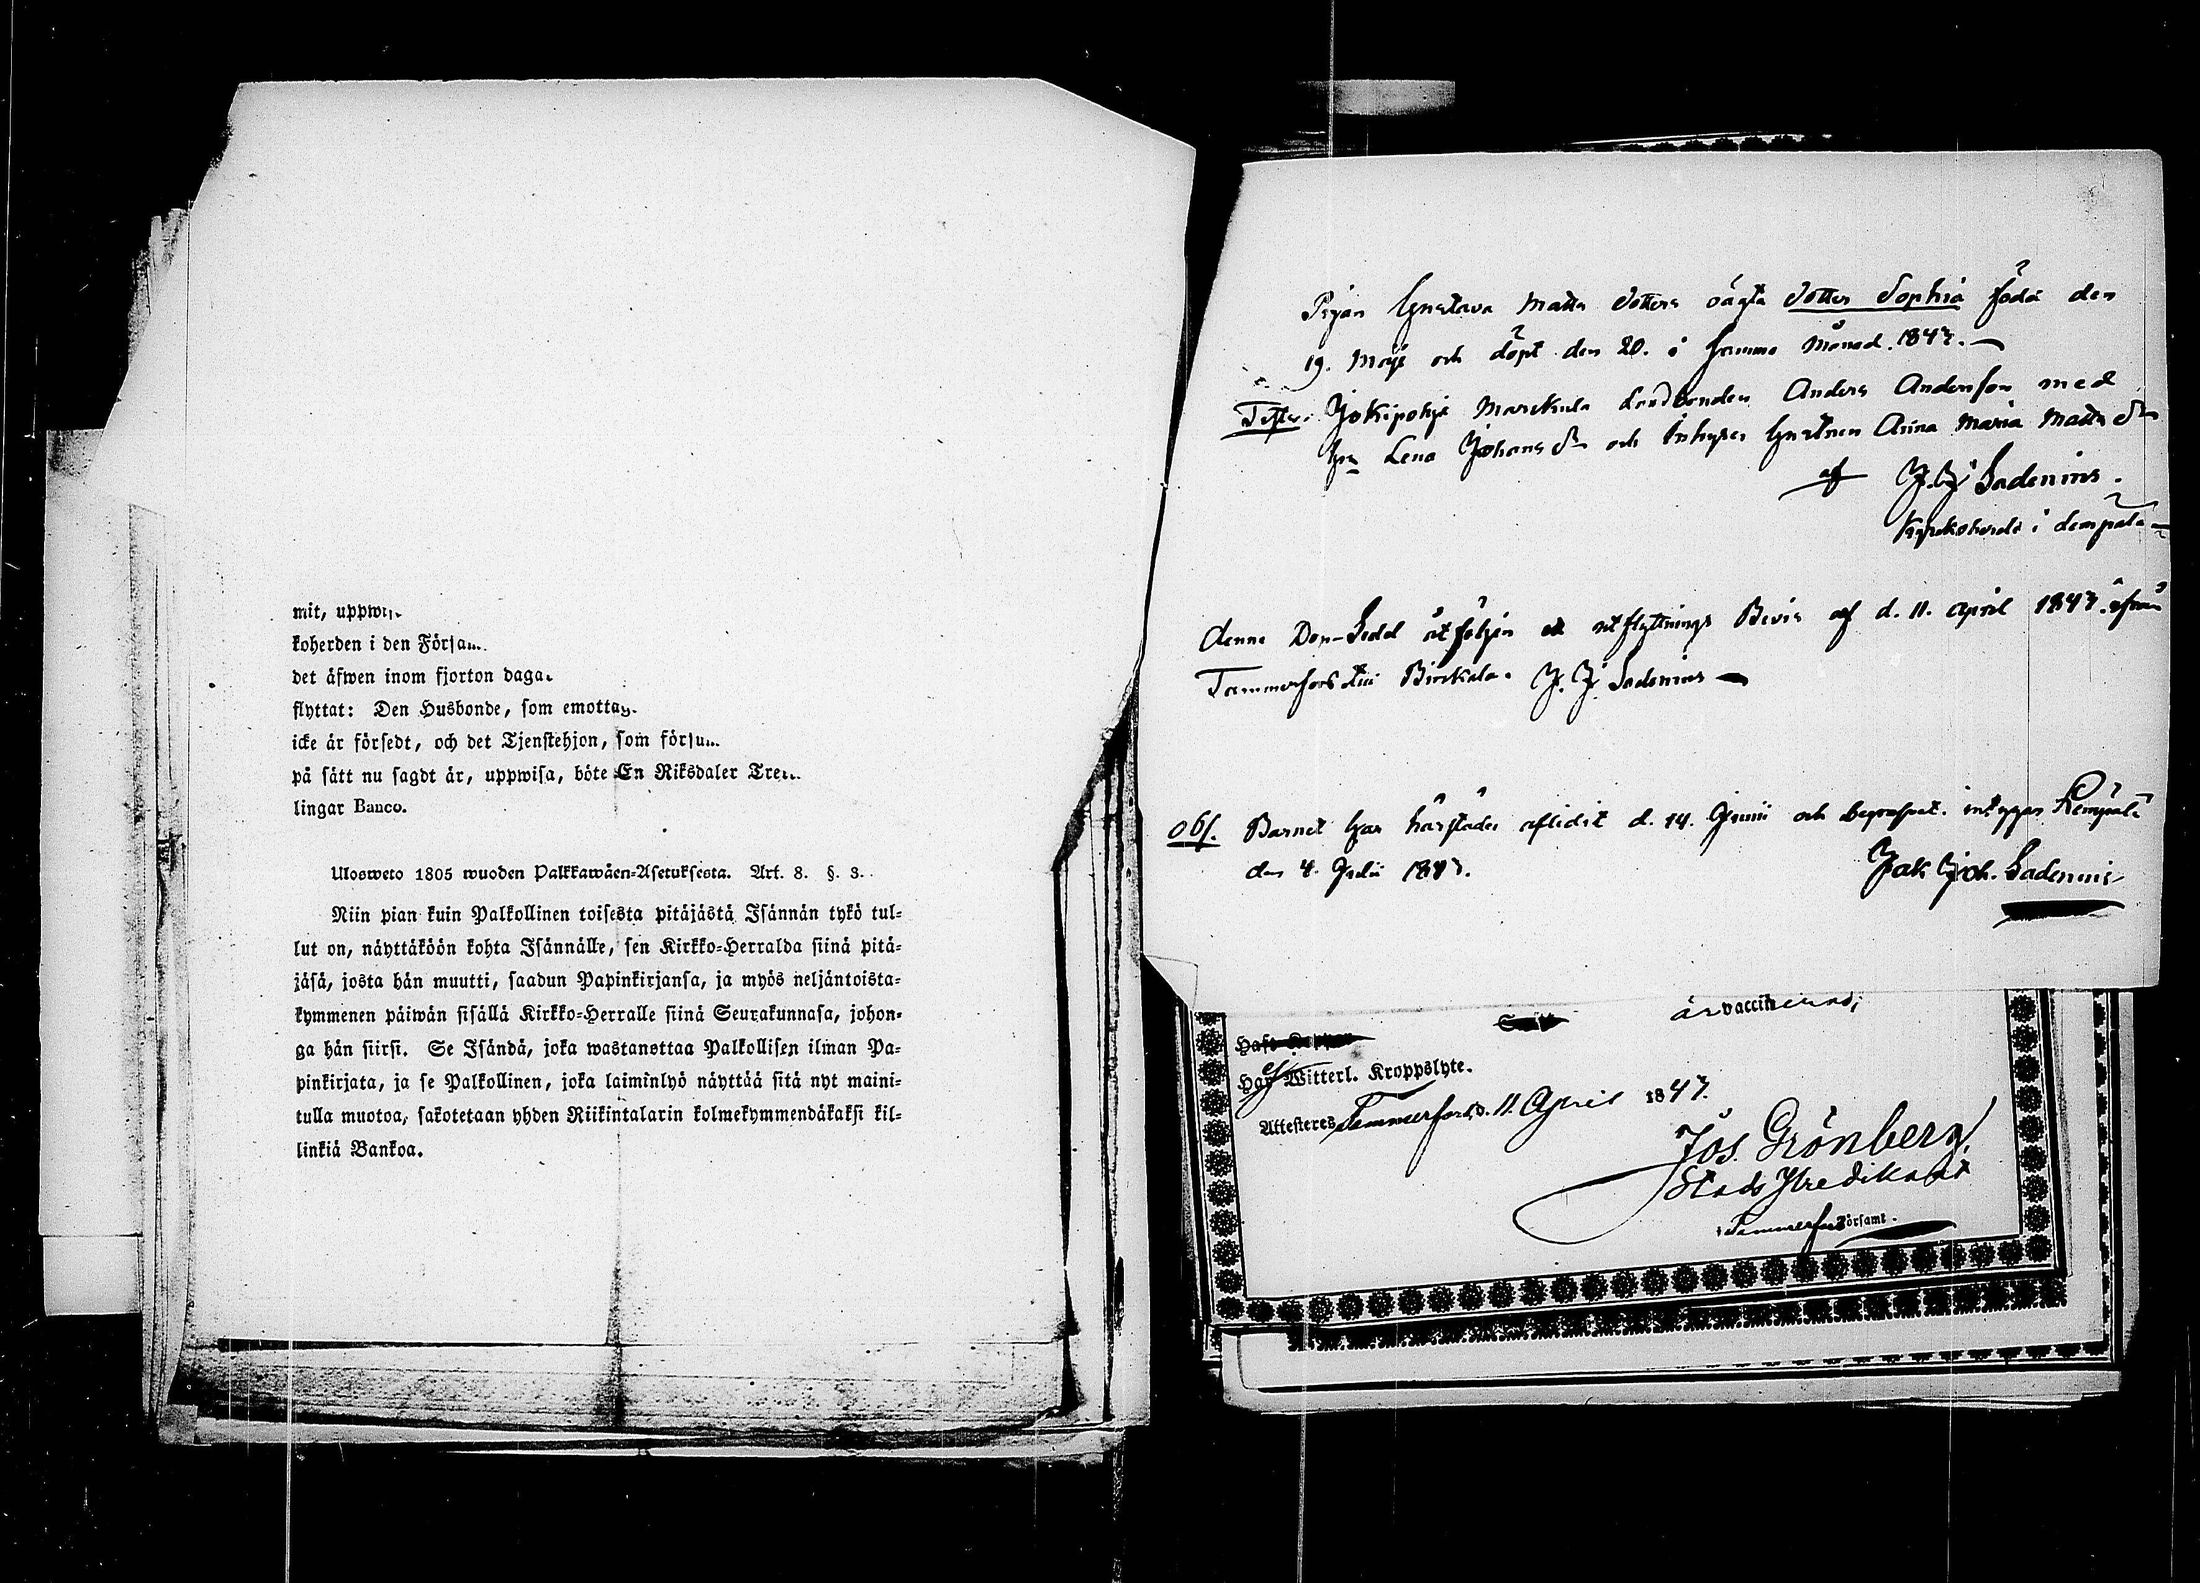 mit, uppwi
koherden i den Församl
det äfwen inom fjorton daga
flyttat: Den Husbonde, som emottag
icke är försedt, och det Tjenstehjon, som försu
på sätt nu sagdt är, uppwisa, böte En Riksdaler Tre
lingar Banco.
Ulosweto 1805 wuoden Palkkawäen-Asetuksesta. Art. 8. §. 3.
Niin pian kuin Palkollinen toisesta pitäjästä Isännän tykö tul-
lut on, näyttäköön kohta Isännälle, sen Kirkko-Herralda siinä pitä-
jäsä, josta hän muutti, saadun Papinkirjansa, ja myös neljäntoista-
kymmenen päiwän sisällä Kirkko-Herralle siinä Seurakunnasa, johon-
ga hän siirsi. Se Isändä, joka wastanottaa Palkollisen ilman Pa-
pinkirjata, ja se Palkollinen, joka laiminlyö näyttää sitä nyt maini-
tulla muotoa, sakotetaan yhden Riikintalarin kolmekymmendäkaksi kil-
linkiä Bankoa.
Pigan Gustava Matts dotters oägta dotter Sophia född den
19. Maji och döpt den 20. i samma månad. 1847.
Test: Jokipohja Marckula Landbonden Anders Andersson med
Lena Johans dr och Inhyses Enkan Anna Maria Matts dr
af J. J. Sadenius.
Kyrkoherde i Lempälä
Denna Dop-Sedel åtföljer ett utflyttnings Bevis af d. 11. April 1847. ifrån
Tammerfors till Birkala. J. J. Sadenius
Obs. Barnet har härstädes aflidit d. 14. Junii och begrafvet. intygar Lempälä
den 4. Julii 1847. Jak Joh. Sadenius
är vaccinerad;
Har ej Witterl. Kroppslyte.
Attesteres Tammerfors d. 11. April 1847.
Jos. Grönberg
Stads Predikant
i Tammerfors Församl.